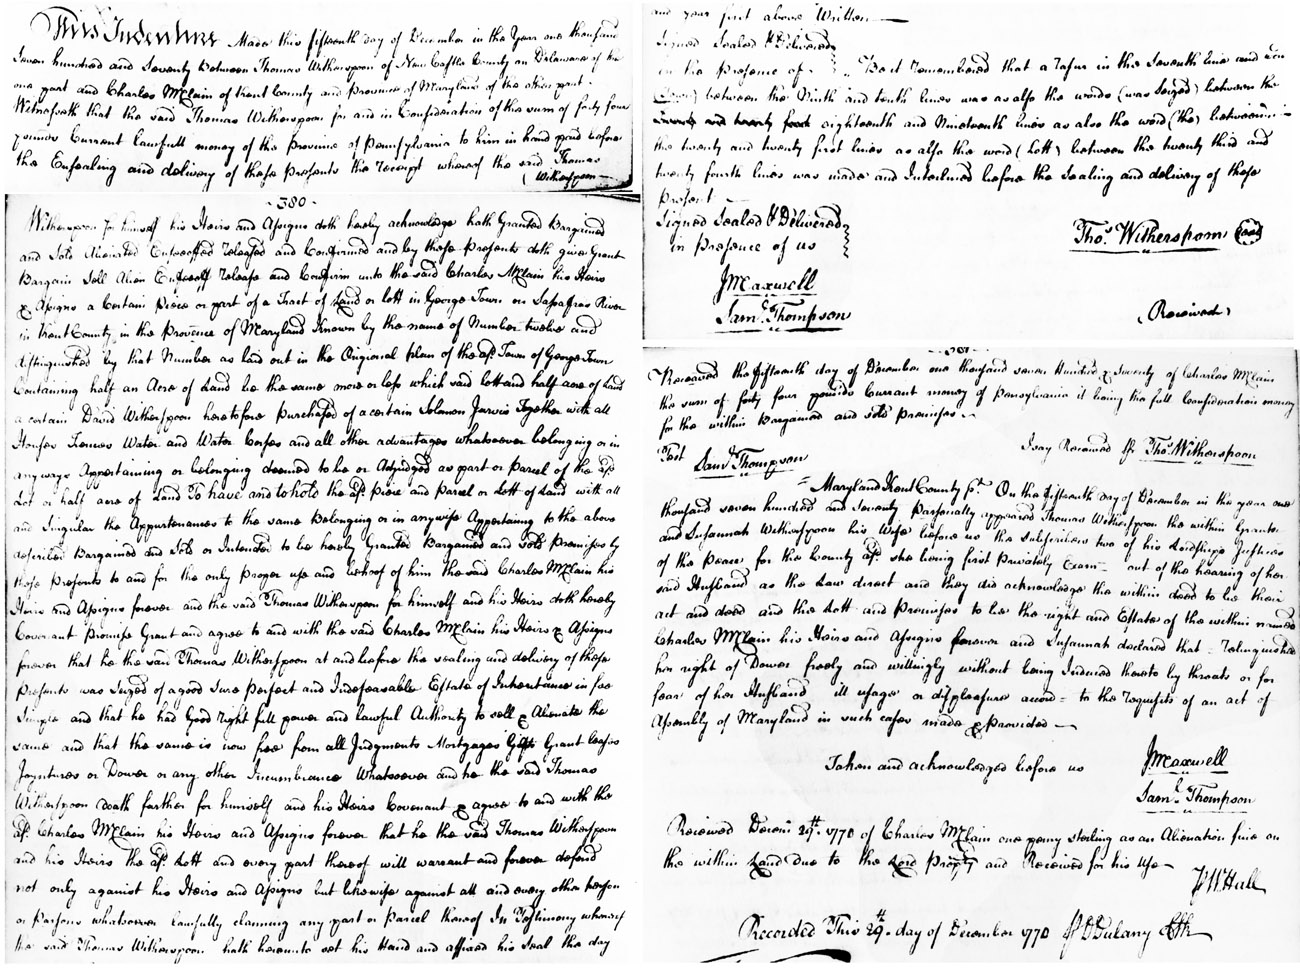 This Indenture Made this fifteenth day of December in the Year one thousand
Seven hundred and Seventy Between Thomas Witherspoon of New Castle County on Delaware of the
one part and Charles McClain of Kent County and Province of Maryland of the other part
Witnesseth that the said Thomas Witherspoon for and in Consideration of the sum of forty four
pounds Current lawfull money of the Province of Pensylvania to him in hand paid before
the Ensealing and delivery of these presents the receipt whereof the said Thomas
(Witherspoon
-380-
Witherspoon for himself his Heirs and Assigns doth hereby acknowledge hath Granted Bargained
and Sold Alienated Enfeoffed released and Confirmed and by these Presents doth give Grant
Bargain Sell Alien Enfeoff release and Confirm unto the said Charles McClain his Heirs
& Assigns a Certain Piece or part of a Tract of Land or lott in George Town on Sassafras River
in Kent County in the Province of Maryland Known by the name of Number twelve and
distinguished by that Number as laid out in the Origional plan of the afsd. Town of George Town
Containing half an Acre of Land be the same more or less which said lott and half acre of Land
a certain David Witherspoon heretofore Purchased of a certain Solomon Jarvis Together with all
Houses Fences Water and Water Corses and all other advantages whatsoever belonging or in
anyways Appertaining or belonging deemed to be or Adjudged as part or Parcel of the afsd.
Lot or half acre of Land To have and to hold the afsd. Piece and Parcel or Lott of Land with all
and Singular the Appurtenances to the same Belonging or in anywise Appertaining to the above
described Bargained and Sold or Intended to be hereby Granted Bargained and Sold Premises by
these Presents to and for the only Proper use and behoof of him the said Charles McClain his
Heirs and Assigns forever and the said Thomas Witherspoon for himself and his Heirs doth hereby
Covenant Promise Grant and agree to and with the said Charles McClain his Heirs & Assigns
forever that he the said Thomas Witherspoon at and before the sealing and delivery of these
Presents was Seized of a good Sure Perfect and Indefeasable Estate of Inheritance in fee
Simple and that he had Good right full power and lawful Authority to sell & Alienate the
same and that the same is now free from all Judgments Mortgages Gift Grant leases
Joyntures or Dower or any other Incumbrance Whatsoever and he the said Thomas
Witherspoon doath farther for himself and his Heirs Covenant & agree to and with the
afsd. Charles McClain his Heirs and Assigns forever that he the said Thomas Witherspoon
and his Heirs the afsd. Lott and every part thereof will warrant and forever defend
not only against his Heirs and Assigns but likewise against all and every other person
or Persons whatsoever lawfully claiming any part or Parcel thereof In Testimony whereof
the said Thomas Witherspoon hath hereunto set his Hand and affixed his Seal the day
and year first above Written
Signed Sealed & Delivered
in the Presence of Be it remembered that a rasur in the Seventh line and
between the Ninth and tenth lines was as also the words (was Seized) between the
eighteenth and Nineteenth lines as also the word (the) between
the twenty and twenty first lines as also the word (Lott) between the twenty third and
twenty fourth lines was made and Interlined before the Sealing and delivery of these
Present
Signed Sealed & Delivered
in Presence of us
Thos. Witherspoon (Seal)
JMaxwell
Saml. Thompson
(Received)
Received the fifteenth day of December one thousand seven Hundred & Seventy of Charles McClain
the sum of forty four pounds Currant money of Pensylvania it being the full Consideration money
for the within Bargained and Sold Premises
I say Received Pr. Thos. Witherspoon
Test Saml. Thompson
Maryland Kent County Sst. On the fifteenth day of December in the year one
thousand seven hundred and Seventy Personally appeared Thomas Witherspoon the within Grantor
and Susannah Witherspoon his Wife before us the subscribers two of his Lordships Justices
of the Peace for the County afsd. she being first Privately Exam- out of the hearing of her
said Husband as the Law direct and they did acknowledge the within deed to be their
act and deed and the Lott and Premises to be the right and Estate of the within named
Charles McClain his Heirs and Assigns forever and Susannah declared that relinquished
her right of Dower freely and willingly without being Induced thereto by threats or for
fear of her Husband ill usage or displeasure accord- to the requisits of an act of
Assembly of Maryland in such cases made & provided
Taken and acknowledged before us
JMaxwell
Saml. Thompson
Received Decem 29th. 1770 of Charles McClain one penny sterling as an Alienation fine on
the within Land Due to the Lord Propty and Received for his Use
Wm Hall
Recorded This 29th. day of December 1770 Dulany Clk